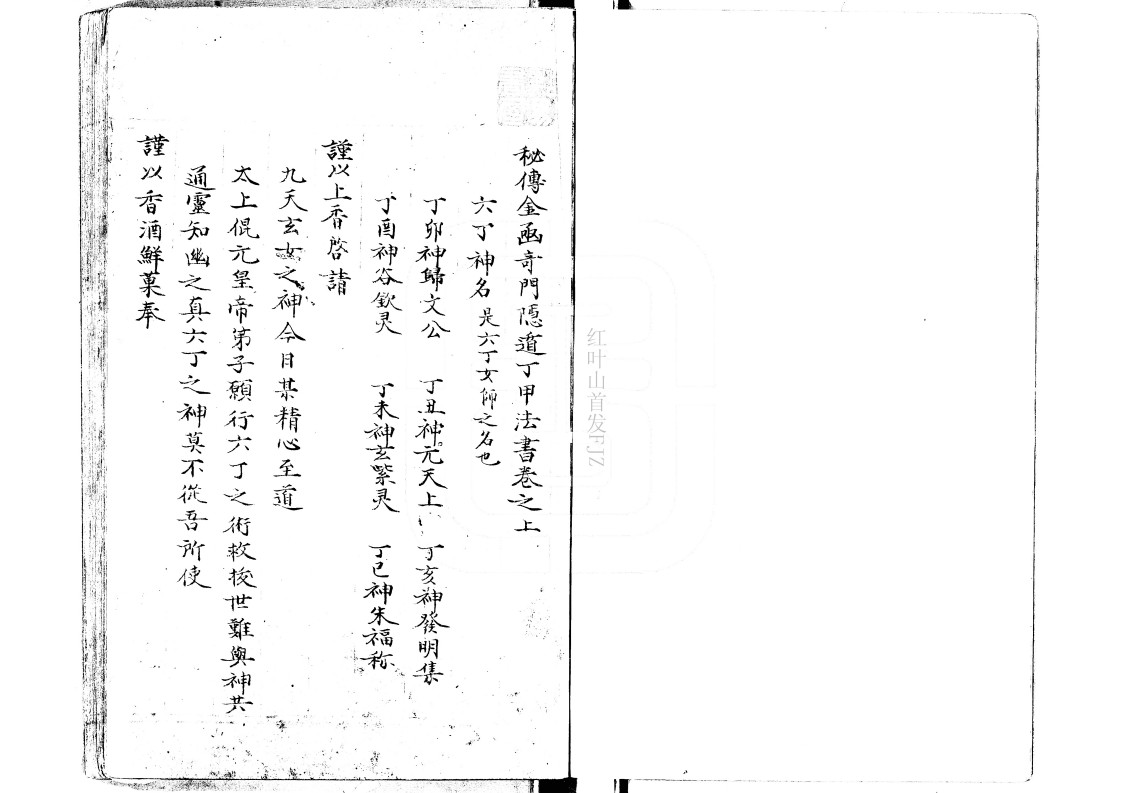 秘傳金函奇門隱遁丁甲法書卷之上
六丁神名 是六丁女師之名也
丁卯神歸文公 丁丑神元天上 丁亥神發明集
丁酉神谷欽灵 丁未神玄紫灵 丁巳神朱福称
謹以上香啓請
九天玄女之神今日某精心至道
太上混元皇帝弟子願行六丁之術救拔世難與神共
通靈知幽之真六丁之神莫不從吾所使
謹以香酒鮮菓奉
红叶山首发FJZ